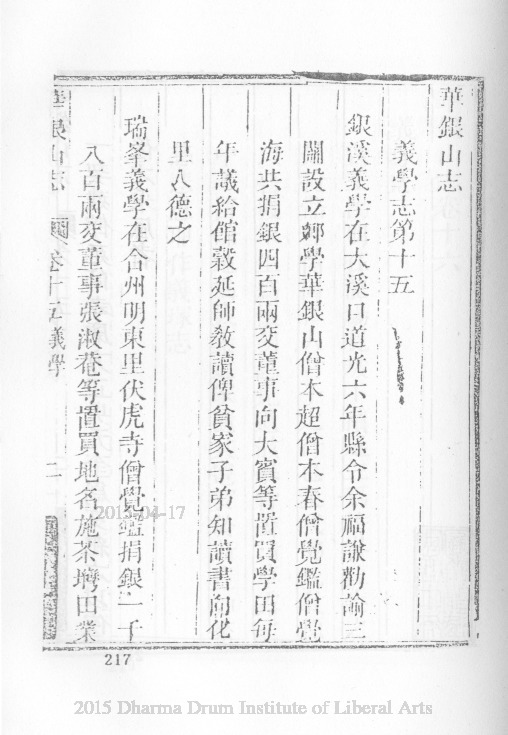 華銀山志
義學志第十五
銀溪義學在大溪口道光六年縣令余福謙勸諭三
關設立鄉學華銀山僧本超僧本春僧覺鑑僧覺
海共捐銀四百兩交董事向大賓等置買學田每
年議給館穀延師教讀俾貧家子弟知讀書向化
里人德之
瑞峯義學在合州明東里伏虎寺僧覺鑑捐銀一千
八百兩交董事張淑菴等置買地名施茶塆田業
華銀山志 卷十五義學 一
2015-04-17
217
2015 Dharma Drum Institute of Liberal Arts